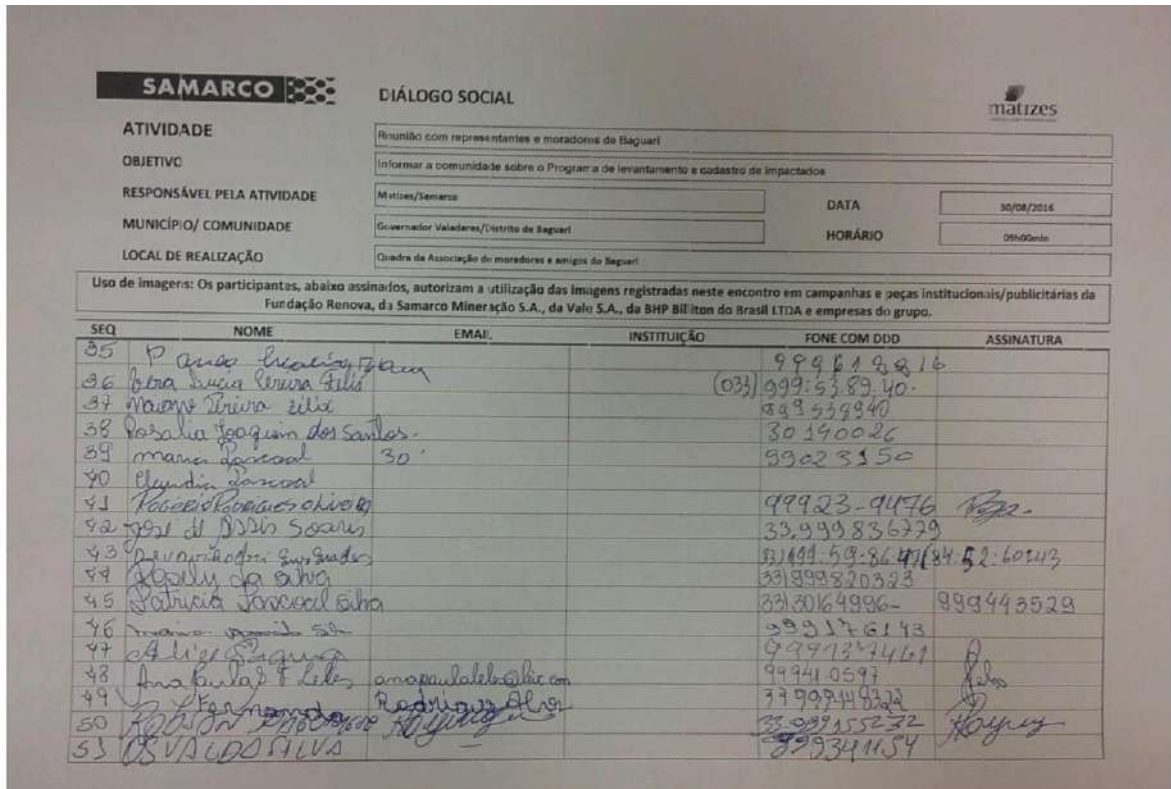 SAMARCO
DIÁLOGO SOCIAL
matizes
ATIVIDADE Reunião com representantes e moradores de Baguari
OBJETIVO Informar a comunidade sobre o Programa de levantamento e cadastro de impactados
RESPONSÁVEL PELA ATIVIDADE Matizes/Samarco DATA 30/08/2016
MUNICÍPIO/ COMUNIDADE Governador Valadares/Distrito de Baguari HORÁRIO 09h00min
LOCAL DE REALIZAÇÃO Quadra da Associação de moradores e amigos do Baguari
Uso de imagens: Os participantes, abaixo assinados, autorizam a utilização das imagens registradas neste encontro em campanhas e peças institucionais/publicitárias da
Fundação Renova, da Samarco Mineração S.A., da Vale S.A., da BHP Billiton do Brasil LTDA e empresas do grupo.
SEQ NOME EMAIL INSTITUIÇÃO FONE COM DDD ASSINATURA
35
36 Lucia (033) 999.53.89.40.
37 Pereira 999538940
38 Rosalia Joaquim dos Santos. 30140026
39 maria Pascoal 30 99023150
40 Claudia Pascoal
41 Rogério Rodrigues oliveira 99923-9476
42 José de Assis Soares 33.999836779
43
44 da silva 33)999820323
45 Patricia Pascoal Silva 33)30164996- 999443529
46 maria 999176143
47
48 Ana Paula Leles 99941-0597
49 Fernando Rodrigues
50 ROBSON
51 OSVALDO SILVA 999341154